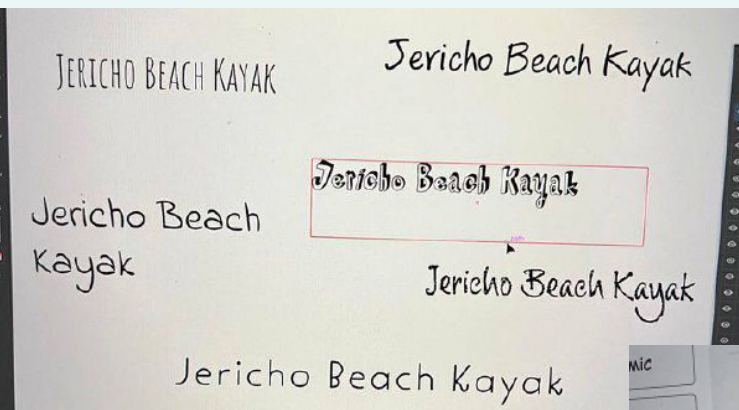 JERICHO BEACH KAYAK
Jericho Beach Kayak
Jericho Beach Kayak
Jericho Beach
Kayak
Jericho Beach Kayak
Jericho Beach Kayak
MIC